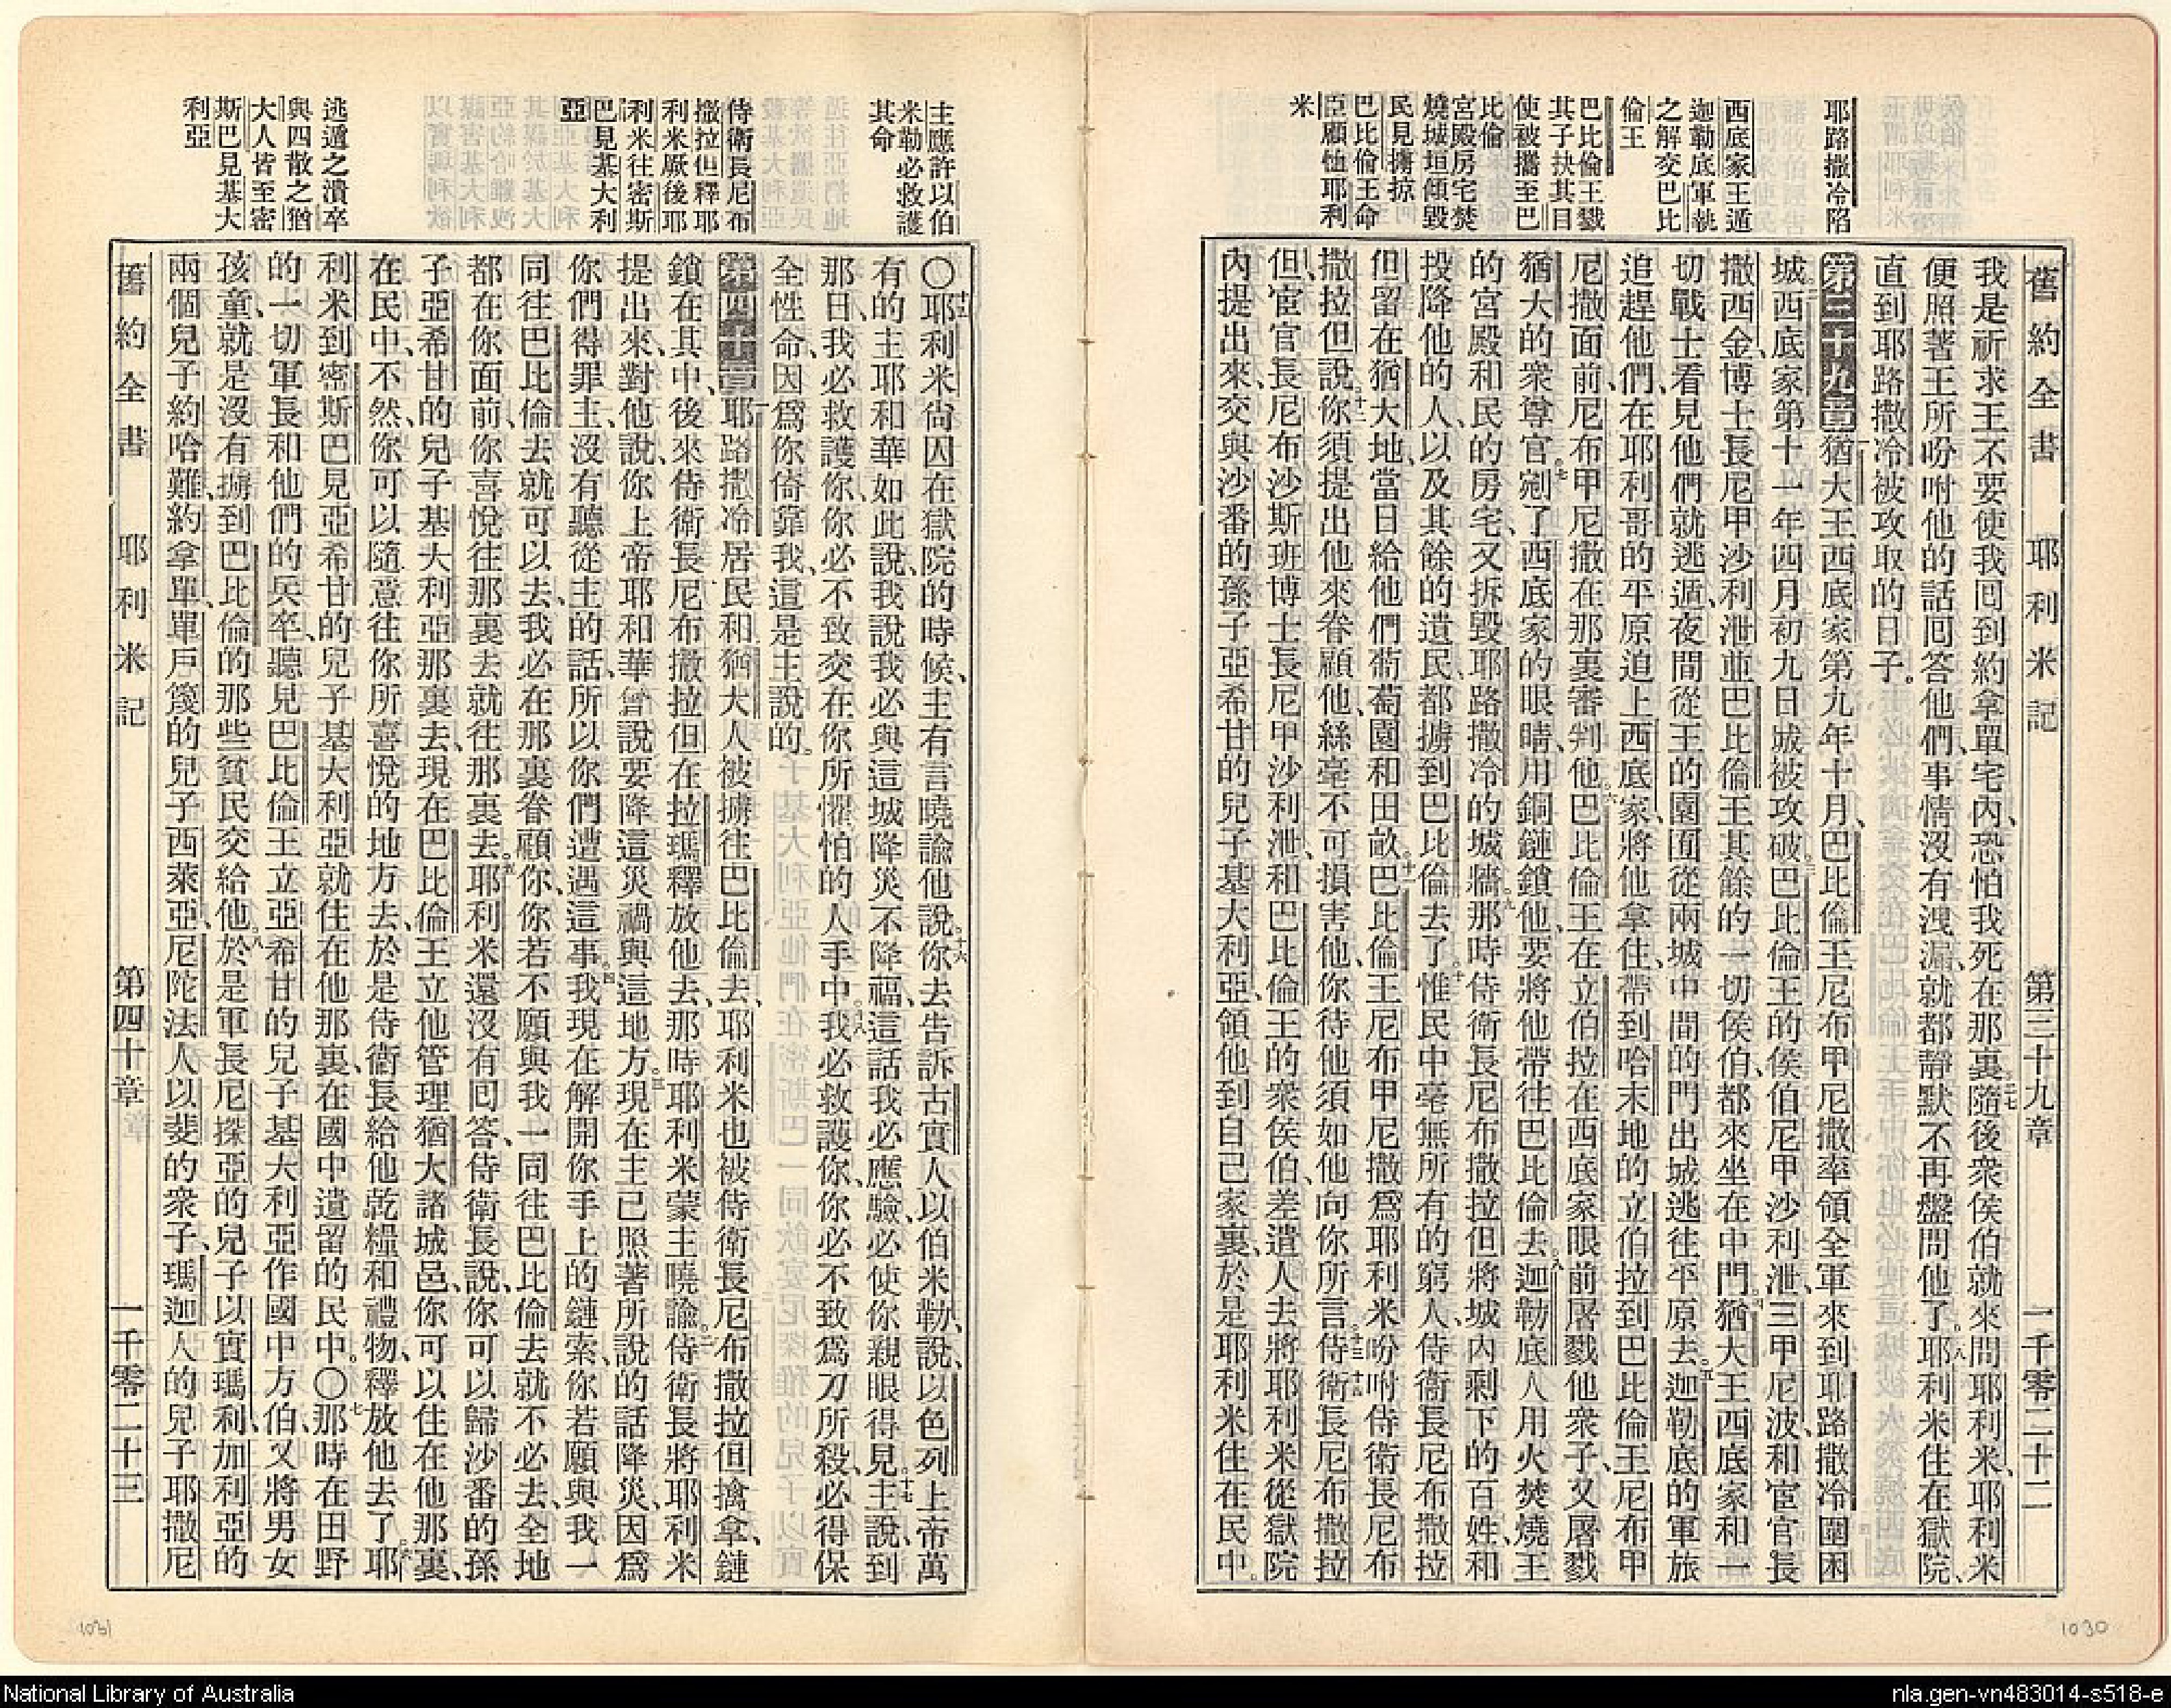 舊約全書 耶利米記 第三十九章 一千零二十二
耶路撒冷陷
西底家王遁
迦勒底軍執
之解交巴比
倫王
巴比倫王戮
其子抉其目
使被擄至巴
比倫
宮殿房宅焚
燒城垣傾毀
民見擄掠
巴比倫王命
臣顧恤耶利
米
我是祈求王不要使我回到約拿單宅內、恐怕我死在那裏、二十七隨後衆侯伯就來問耶利米、耶利米
便照著王所吩咐他的話回答他們、事情沒有洩漏、就都靜默不再盤問他了。二十八耶利米住在獄院、
直到耶路撒冷被攻取的日子。
第三十九章 一猶大王西底家第九年十月、巴比倫王尼布甲尼撒率領全軍來到耶路撒冷圍困
城。二西底家第十一年四月初九日城被攻破。三巴比倫王的侯伯尼甲沙利泄、三甲尼波、和宦官長
撒西金、博士長尼甲沙利泄、並巴比倫王其餘的一切侯伯、都來坐在中門。四猶大王西底家和一
切戰士看見他們、就逃遁、夜間從王的園囿、從兩城中間的門出城、逃往平原去。五迦勒底的軍旅
追趕他們、在耶利哥的平原追上西底家、將他拿住、帶到哈末地的立伯拉、到巴比倫王尼布甲
尼撒面前、尼布甲尼撒在那裏審判他。六巴比倫王在立伯拉、在西底家眼前屠戮他衆子、又屠戮
猶大的衆尊官。七剜了西底家的眼睛、用銅鏈鎖他、要將他帶往巴比倫去。八迦勒底人用火焚燒王
的宮殿和民的房宅、又拆毀耶路撒冷的城牆。九那時侍衛長尼布撒拉但、將城內剩下的百姓、和
投降他的人、以及其餘的遺民、都擄到巴比倫去了。十惟民中毫無所有的窮人、侍衛長尼布撒拉
但留在猶大地、當日給他們葡萄園和田畝。十一巴比倫王尼布甲尼撒爲耶利米吩咐侍衛長尼布
撒拉但說、十二你須提出他來眷顧他、絲毫不可損害他、你待他須如他向你所言。十三侍衛長尼布撒拉
但、宦官長尼布沙斯班、博士長尼甲沙利泄、和巴比倫王的衆侯伯、差遣人去、十四將耶利米從獄院
內提出來、交與沙番的孫子亞希甘的兒子基大利亞、領他到自己家裏、於是耶利米住在民中。
主應許以伯
米勒必救護
其命
侍衛長尼布
撒拉但釋耶
利米厥後耶
利米往密斯
巴見基大利
亞
逃遁之潰卒
與四散之猶
大人皆至密
斯巴見基大
利亞
〇十五耶利米尙囚在獄院的時候、主有言曉諭他說。十六你去告訴古實人以伯米勒、說、以色列上帝萬
有的主耶和華如此說、我說我必與這城降災不降福、這話我必應驗、必使你親眼得見。十七主說、到
那日、我必救護你、你必不致交在你所懼怕的人手中。十八我必救護你、你必不致爲刀所殺、必得保
全性命、因爲你倚靠我、這是主說的。
第四十章 一耶路撒冷居民和猶大人被擄往巴比倫去、耶利米也被侍衛長尼布撒拉但擒拿、鏈
鎖在其中、後來侍衛長尼布撒拉但在拉瑪釋放他去、那時耶利米蒙主曉諭。二侍衛長將耶利米
提出來、對他說、你上帝耶和華曾說要降這災禍與這地方。三現在主已照著所說的話降災、因爲
你們得罪主、沒有聽從主的話、所以你們遭遇這事。四我現在解開你手上的鏈索、你若願與我一
同往巴比倫去、就可以去、我必在那裏眷顧你、你若不願與我一同往巴比倫去、就不必去、全地
都在你面前、你喜悅往那裏去、就往那裏去。五耶利米還沒有回答、侍衛長說、你可以歸沙番的孫
子亞希甘的兒子基大利亞那裏去、現在巴比倫王立他管理猶大諸城邑、你可以住在他那裏、
在民中、不然、你可以隨意往你所喜悅的地方去、於是侍衛長給他乾糧和禮物、釋放他去了。六耶
利米到密斯巴見亞希甘的兒子基大利亞、就住在他那裏、在國中遺留的民中。〇七那時在田野
的一切軍長和他們的兵卒、聽見巴比倫王立亞希甘的兒子基大利亞作國中方伯、又將男女
孩童、就是沒有擄到巴比倫的那些貧民交給他。八於是軍長尼探亞的兒子以實瑪利、加利亞的
兩個兒子約哈難、約拿單、單戶篾的兒子西萊亞、尼陀法人以斐的衆子、瑪迦人的兒子耶撒尼
舊約全書 耶利米記 第四十章 一千零二十三
1031
1030
National Library of Australia
nla.gen-vn483014-s518-e